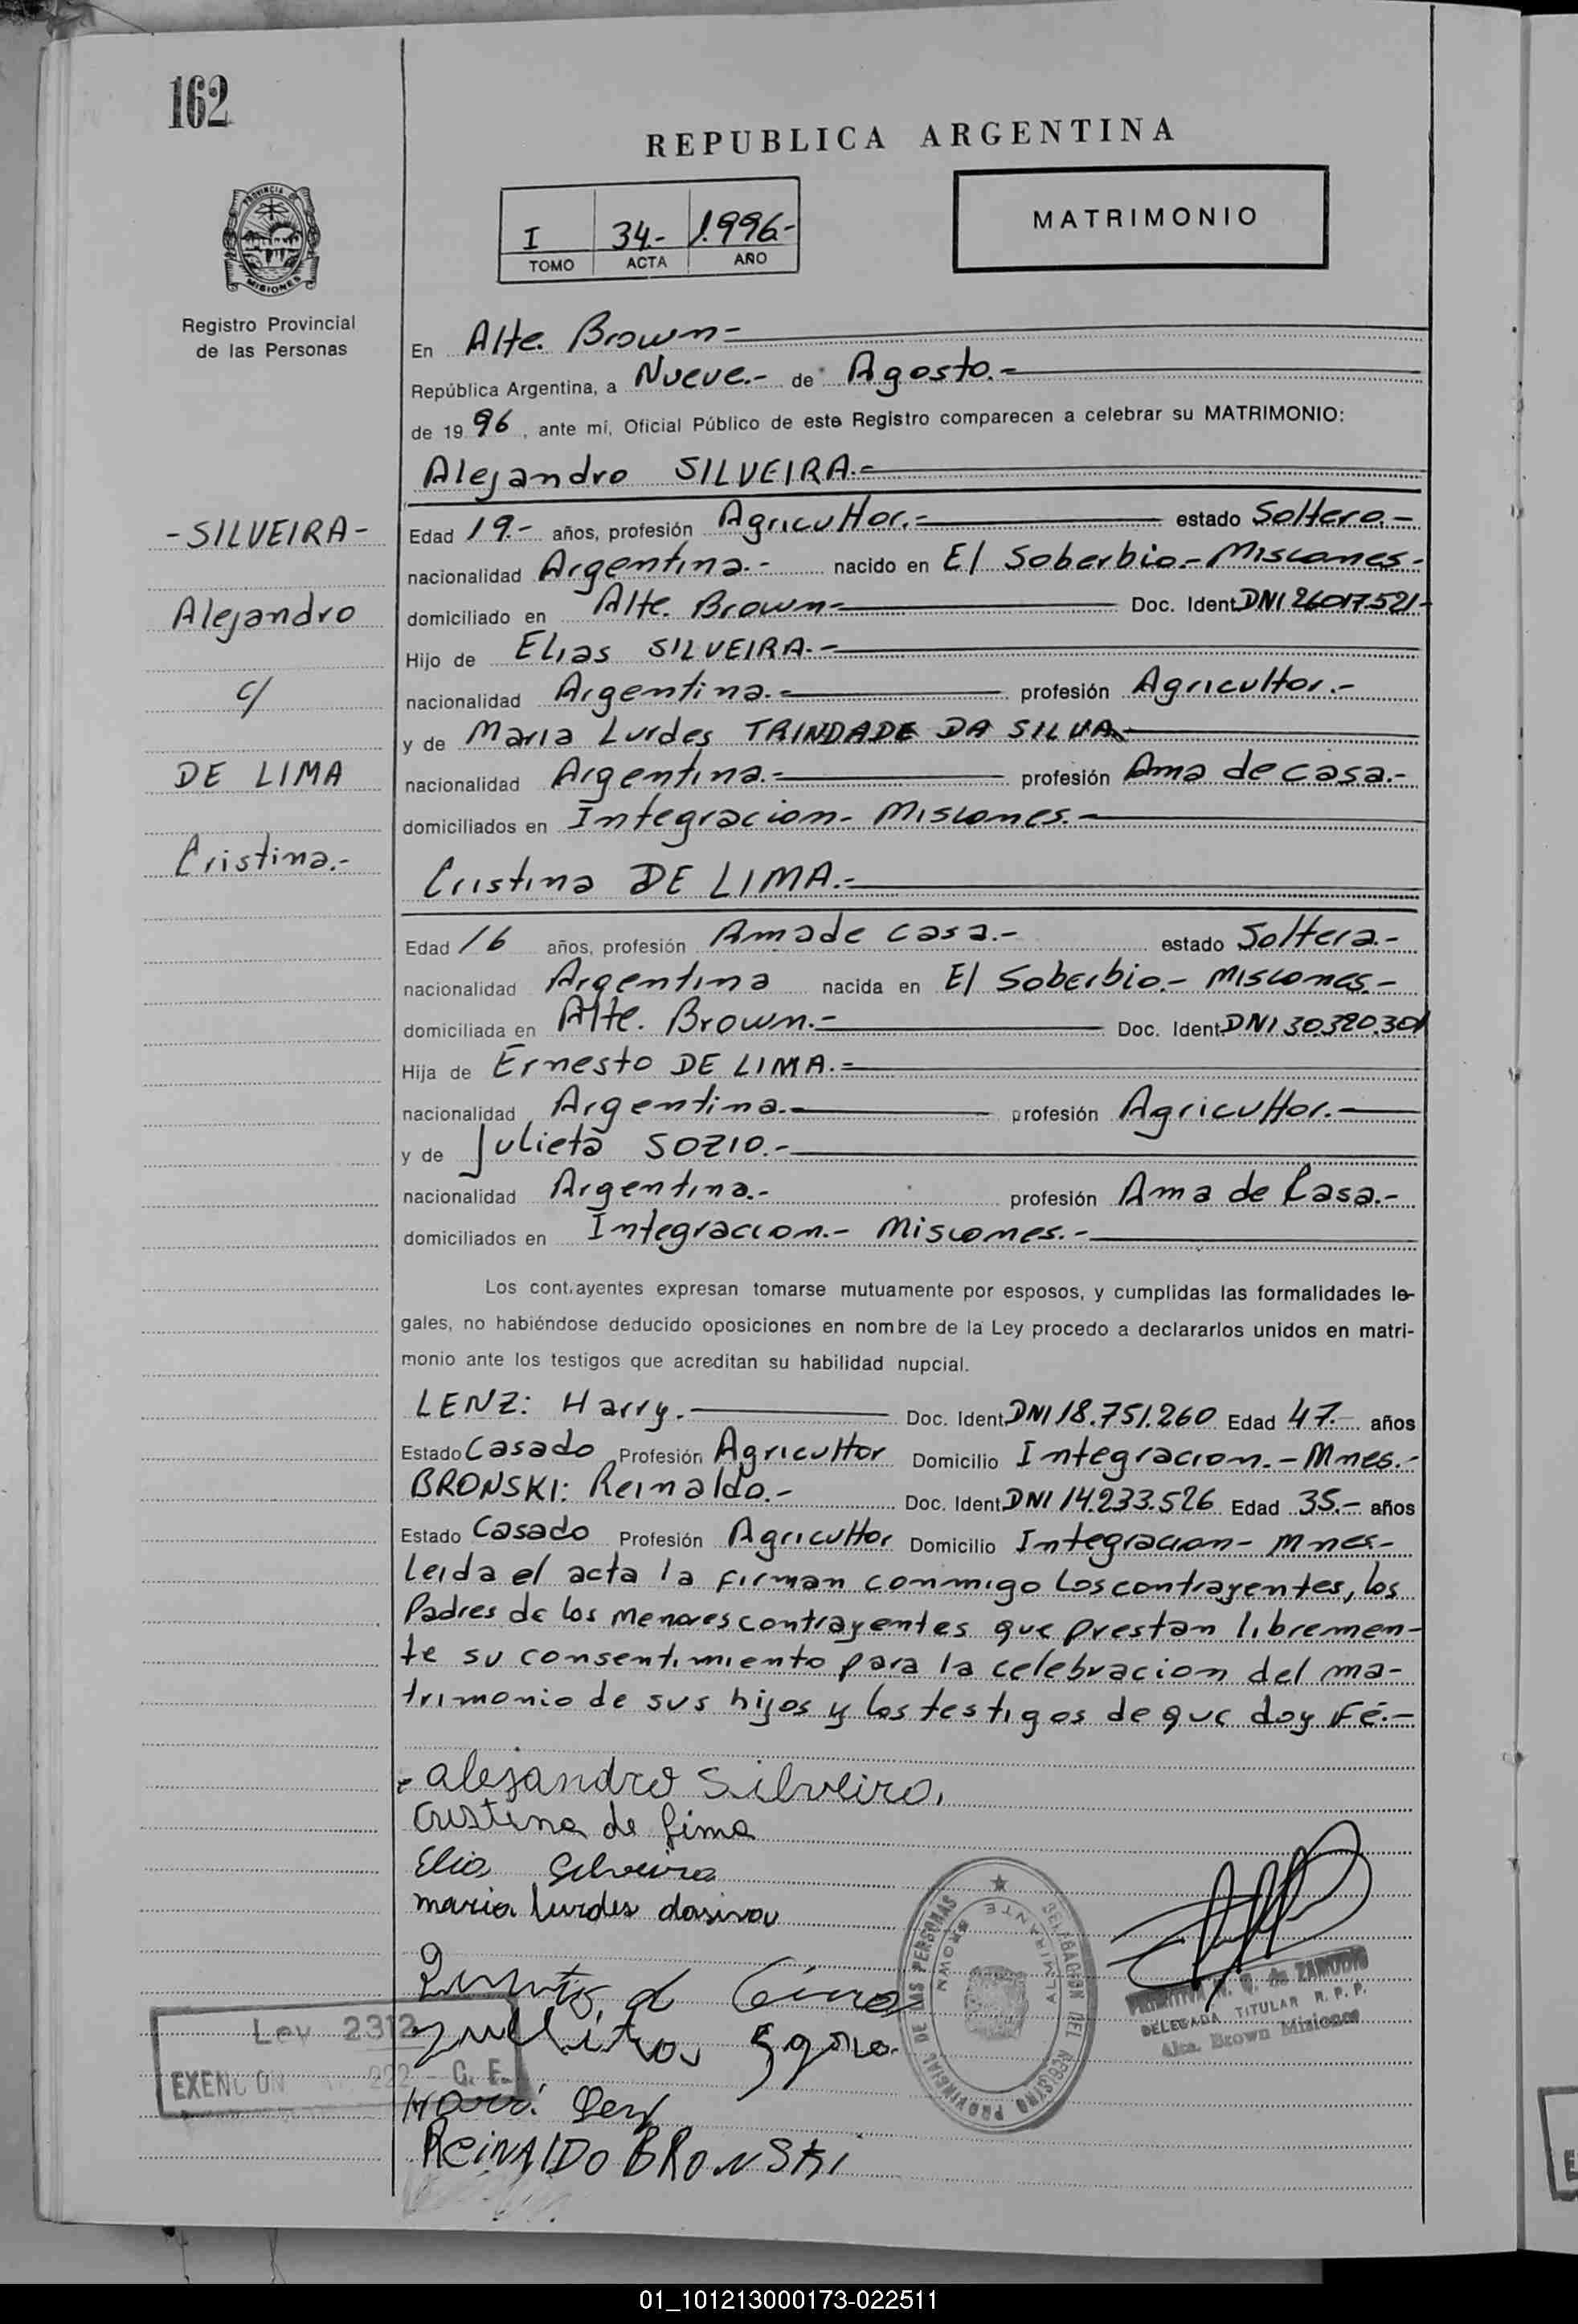 162
REPUBLICA ARGENTINA
I 34.- 1.996.-
TOMO ACTA AÑO
MATRIMONIO
PROVINCIA DE
MISIONES
Registro Provincial
de las Personas
En Alte. Brown-
República Argentina, a Nueve.- de Agosto.-
de 1996, ante mí, Oficial Público de este Registro comparecen a celebrar su MATRIMONIO:
Alejandro SILVEIRA.-
-SILVEIRA-
Alejandro
c/
DE LIMA
Cristina.-
Edad 19.- años, profesión Agricultor.- estado Soltero.-
nacionalidad Argentina.- nacido en El Soberbio.- Misiones-
domiciliado en Alte. Brown- Doc. Ident. DNI 26017.521-
Hijo de Elias SILVEIRA.-
nacionalidad Argentina.- profesión Agricultor.-
y de Maria Lurdes TRINDADE DA SILVA-
nacionalidad Argentina.- profesión Ama de casa.-
domiciliados en Integracion- Misiones.-
Cristina DE LIMA.-
Edad 16 años, profesión Ama de casa.- estado Soltera.-
nacionalidad Argentina nacida en El Soberbio.- Misiones.-
domiciliada en Alte. Brown.- Doc. Ident. DNI 30.320.301
Hija de Ernesto DE LIMA.-
nacionalidad Argentina.- profesión Agricultor.-
y de Julieta SOZIO.-
nacionalidad Argentina.- profesión Ama de Casa.-
domiciliados en Integracion.- Misiones.-
Los contrayentes expresan tomarse mutuamente por esposos, y cumplidas las formalidades le-
gales, no habiéndose deducido oposiciones en nombre de la Ley procedo a declararlos unidos en matri-
monio ante los testigos que acreditan su habilidad nupcial.
LENZ: Harry.- Doc. Ident. DNI 18.751.260 Edad 47.- años
Estado Casado Profesión Agricultor Domicilio Integracion.-Mnes.-
BRONSKI: Reinaldo.- Doc. Ident. DNI 14.233.526 Edad 35.- años
Estado Casado Profesión Agricultor Domicilio Integracion- Mnes-
Leida el acta la firman conmigo los contrayentes, los
Padres de los menores contrayentes que prestan libremen-
te su consentimiento para la celebracion del ma-
trimonio de sus hijos y los testigos de que doy Fé.-
Alejandro Silveira,
Cristina de Lima
Elias Silveira
maria lurdes
REGISTRO PROVINCIAL DE LAS PERSONAS
DELEGACION DEL
ALMIRANTE BROWN
ZAMUDIO
DELEGADA TITULAR R. P. P.
Alte. Brown Misiones
Ley 2312
EXENCION 222 G. F.
REINALDO BRONSKI
01_101213000173-022511